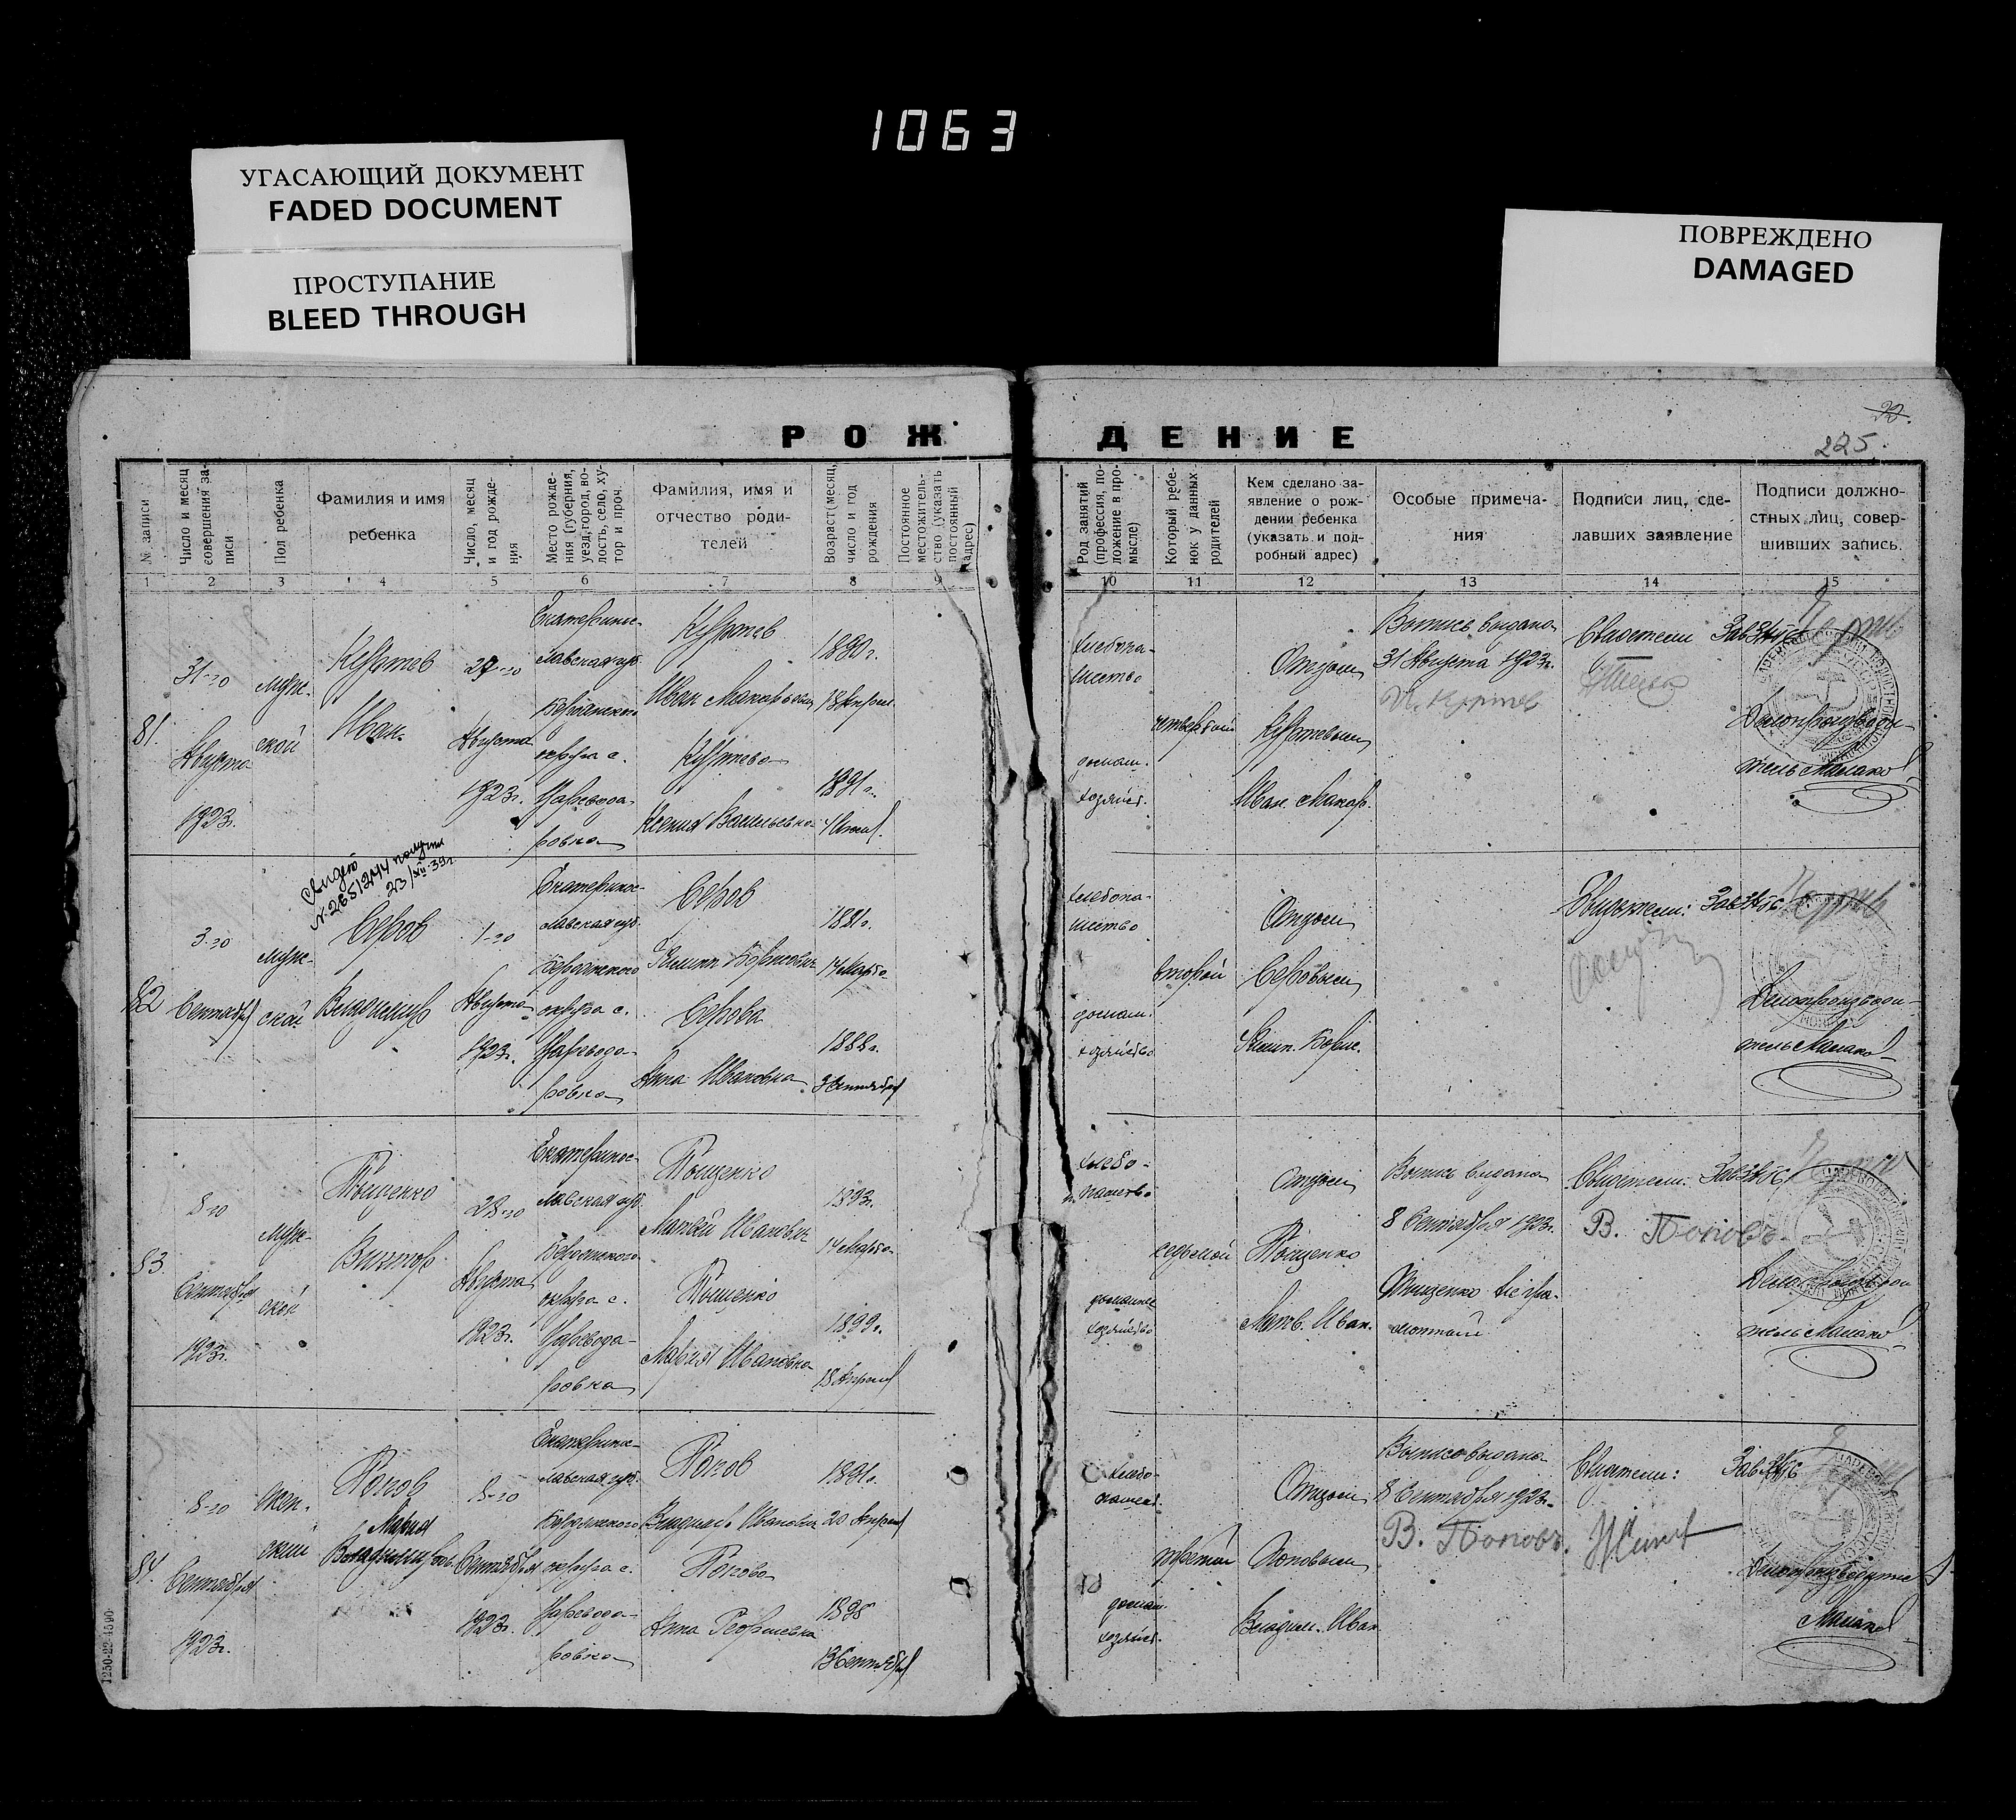 1063
УГАСАЮЩИЙ ДОКУМЕНТ
FADED DOCUMENT
ПРОСТУПАНИЕ
BLEED THROUGH
ПОВРЕЖДЕНО
DAMAGED
22.
225.
РОЖДЕНИЕ
№ записи
Число и месяц
совершения за-
писи
Пол ребенка
Фамилия и имя
ребенка
Число, месяц
и год рожде-
ния
Место рожде-
ния (губерния,
уезд, город, во-
лость, село, ху-
тор и проч.
Фамилия, имя и
отчество роди-
телей
Возраст (месяц,
число и год
рождения
Постоянное
местожитель-
ство (указать
постоянный
адрес)
Род занятий
(профессия, по-
ложение в про-
мысле)
Который ребе-
нок у данных
родителей
Кем сделано за-
явление о рож-
дении ребенка
(указать и под-
робный адрес)
Особые примеча-
ния
Подписи лиц, сде-
лавших заявление
Подписи должно-
стных лиц, совер-
шивших запись.
1 2 3 4 5 6 7 8 9 10 11 12 13 14 15
81.
31-го
Августа
1923г.
муж-
ской
Куртев
Иван.
27-го
Августа
1923г.
Екатеринос-
лавская губ.
Бердянского
округа с.
Царевода-
ровка
Куртев
Иван Макарьевич
Куртева
Ксения Васильевна
1890г.
18 Апрел.
1891г.
хлебопа-
шество
домаш.
хозяйст.
четвертый
Отцом
Куртевым
Иван. Макар.
Выпись выдана
31 Августа 1923г.
И. Куртев
Свидетели
ЗавЗАГС
Делопроизводи-
тель
82
3-го
Сентября
муж-
ской
Свидет
№ 265/274 получил
23/XII-39г.
Серов
Владимир
1-го
Августа
1923г.
Екатеринос-
лавская губ.
Бердянского
округа с.
Царевода-
ровка
Серов
Борисович
Серова
Анна Ивановна
1891г.
14 Марта
1888г.
3 Сентября
хлебопа-
шество
домаш.
хозяйство
второй
Отцом
Серовым
Борис.
Свидетели:
ЗавЗАГС
Делопроизводи-
тель
83.
8-го
Сентября
1923г.
муж-
ской
Тыщенко
Виктор
28-го
Августа
1923г.
Екатеринос-
лавская губ.
Бердянского
округа с.
Царевода-
ровка
Тыщенко
Матвей Иванович
Тыщенко
Мария Ивановна
1893г.
14 Марта
1899г.
18 Апреля
хлебо-
пашество
домашнее
хозяйство
седьмой
Отцом
Тыщенко
Матв. Иван.
Выпись выдана
8 Сентября 1923г.
Тыщенко негра-
мотный
Свидетели:
В. Поповъ
ЗавЗАГС
Делопроизводи-
тель
84.
8-го
Сентября
1923г.
жен-
ский
Попов
Мария
8-го
Сентября
1923г.
Екатеринос-
лавская губ.
Бердянского
округа с.
Царевода-
ровка
Попов
Владимир Иванович
Попова
Анна Георгиевна
1891г.
20 Апреля
1895
13 Сентября
хлебо-
пашест.
домаш.
хозяйст.
третий
Отцом
Поповым
Владим. Иван
Выпись выдана
8 Сентября 1923г.
В. Поповъ.
Свидетели:
ЗавЗАГС
Делопроизводитель
1250-22-4590